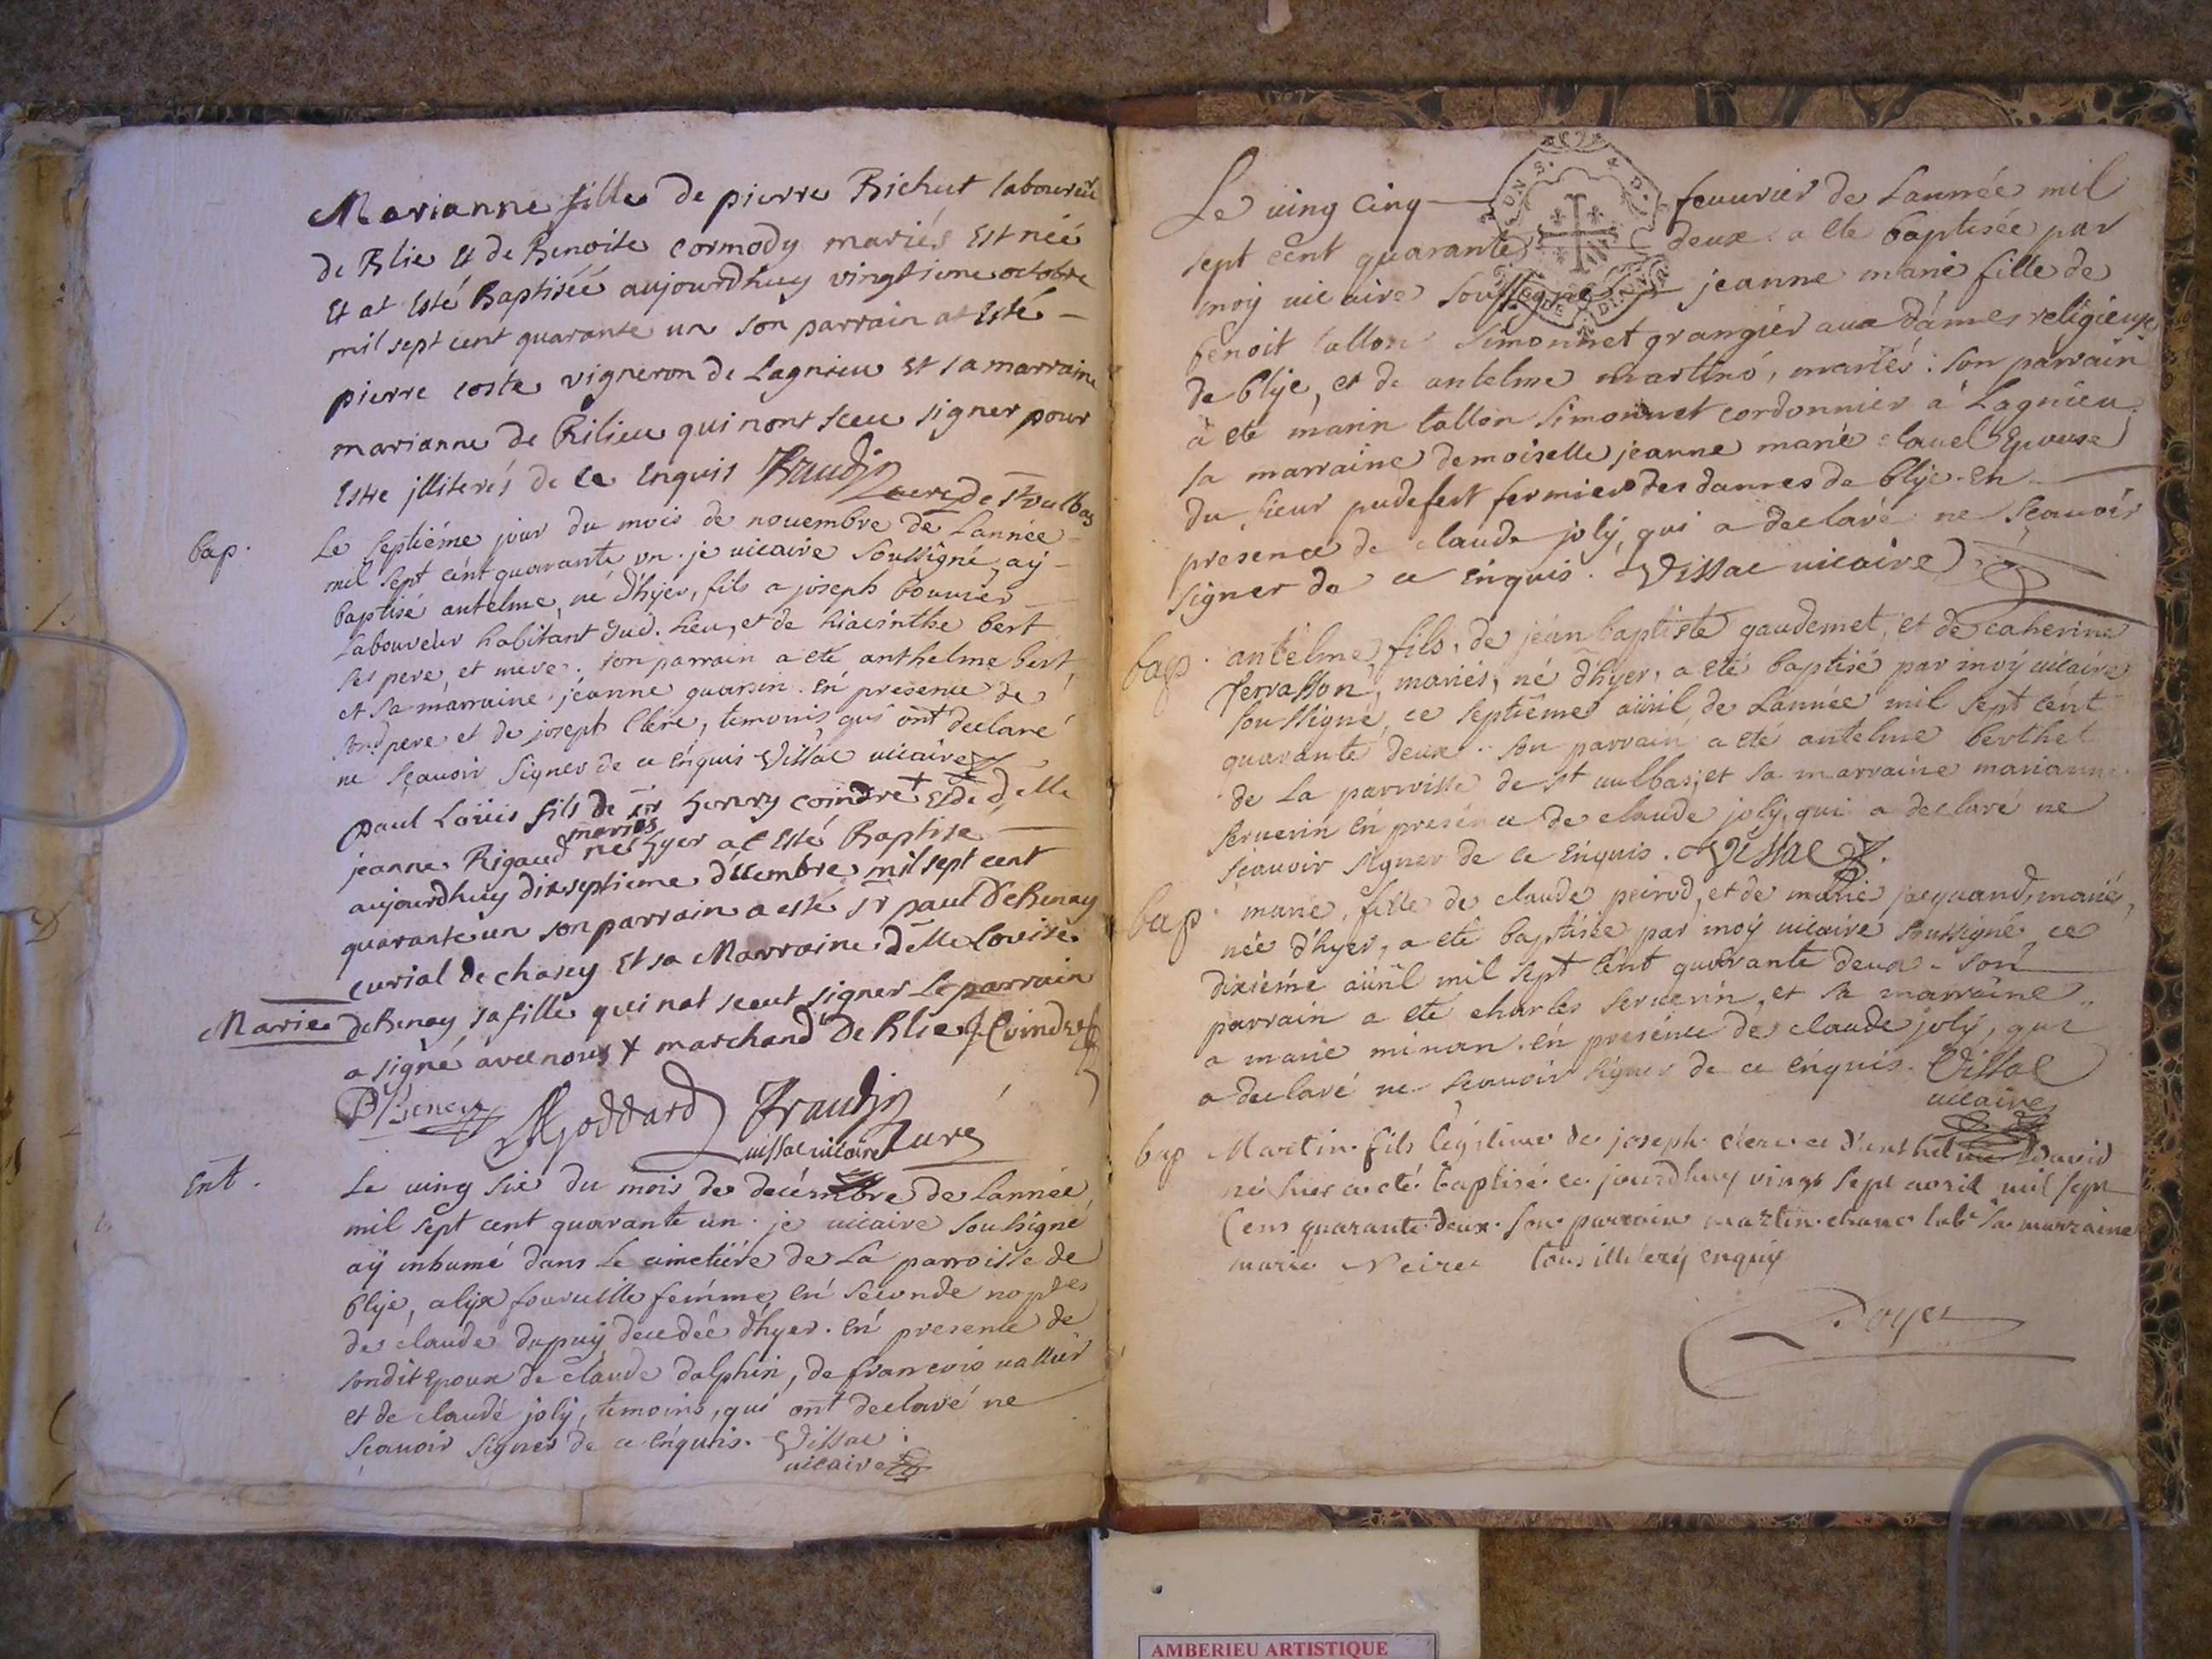 Marianne fille de pierre Richut laboureur
de Blie et de Benoite cormody mariés Est née
Et at Esté Baptiséé aujourdhuy vingtieme octobre
mil sept cent quarante un son parrain at Esté
pierre coste vigneron de Lagnieu Et sa marraine
marianne de Rilieu qui nont sceu signer pour
Estre jlliterés de ce Enquis Fraudin
curé de St Vulbas
bap. Le septiéme jour du mois de nouembre de Lannée
mil sept cént quarante un. je uicaire soussigné, aÿ
baptisé antelme, né d'hyer, fils a joseph bouuier
Laboureur habitant dud. lieu, et de hiacinthe bert
ses pere et mere. son parrain a eté anthelme bert,
et sa marraine jeanne guarsin. en presence de
sond pere et de joseph Clere, temoins qui ont declaré
ne sçauoir signer de ce enquis Vissac uicaire
paul Loüis fils de sr henry coindre + Et de delle
mariés
jeanne Rigaud né hyer at Esté Baptise
aujourdhuy dixseptieme décembre mil sept cent
quarante un son parrain a esté sr paul DeRenay
curial de chasey Et sa Marraine delle Lovise
Marie deRenay sa fille qui nat sceut signer Le parrain
a signé avec nous + marchand De Blie J. Coindre
P DeReney Goddard Fraudin
uissac uicaire curé
Ent. Le uing six du mois de decémbre de Lannée
mil sept cent quarante un. je uicaire soussigné
aÿ inhumé dans Le cimetiére de La parroisse de
blije, alix femme en seconde noptes
de claude dupuy decedée d'hyer. en presence de
sondit epoux de claude dalphin, de francois uallier
et de claude joly, temoins, qui ont declaré ne
sçauoir signer de ce enquis. Vissac
uicaire
Le uing cinq feuurier de Lannée mil
sept cent quarante deux a ete baptisée par
moÿ uicaire soussigné jeanne marie fille de
benoit tallon simonnet grangier aux dámes religieuses
de blije, et de antelme martino, mariés: son parrain
a eté marin tallon simonnet cordonnier a Lagnieu
sa marraine demoiselle jeanne marie clauel Epouse
du sieur pudefert fermier des dammes de blije. en
presence de claude joly, qui a declaré ne sçauoir
signer de ce enquis. Vissac uicaire
bap. antelme, fils, de jean baptiste gaudemet, et de catherine
Terrasson, mariés, né d'hyer, a eté baptisé par moÿ uicaire
soussigné, ce septiéme auril de Lannée mil sept cént
quarante deux. son parrain a eté antelme berthet
de La parroisse de st uulbas; et sa marraine marianne
seruerin en presence de claude joly, qui a declaré ne
sçauoir signer de ce enquis. Vissac
bap. marie, fille de claude peirod, et de marie jacquand, mariés,
née d'hyer, a eté baptisée par moÿ uicaire soussigné ce
dixiéme auril mil sept cént quarante deux. son
parrain a eté charles seruerin, et sa marraine
a marie minan. en presence de claude joly, qui
a declaré ne sçauoir signer de ce enquis. Vissac
uicaire
bap Martin fils legitime de joseph clerc et d'anthelme David
né hier a eté baptisé ce jourdhuy vingt sept avril mil sept
Cens quarante deux son parrain martin chanc labr sa marraine
marie Neiret tous illiterez enquis
Doyer
AMBERIEU ARTISTIQUE